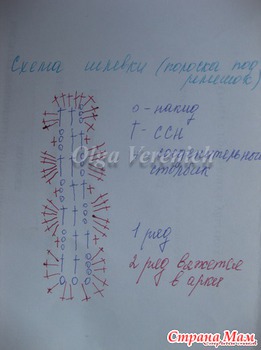 Схема шлевки (полоска под
ремешок)
о - накид
† - ССН
Olga Verenich
столбик
1 ряд
2 ряд вяжется
в арки
Страна Мам